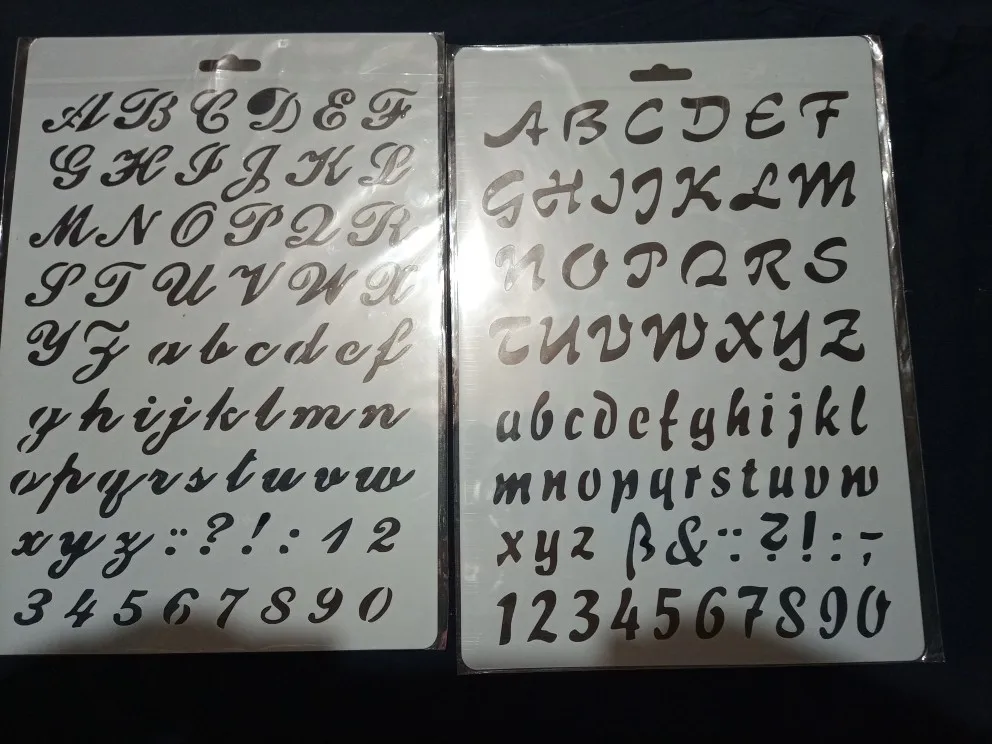 A B C D E F
G H I J K L
M N O P Q R
S T U V W X
Y Z a b c d e f
g h i j k l m n
o p q r s t u v w
x y z ¨ ? ! : 1 2
3 4 5 6 7 8 9 0
A B C D E F
G H I J K L M
N O P Q R S
T U V W X Y Z
a b c d e f g h i j k l
m n o p q r s t u v w
x y z ß & ¨ ? ! : ; -
1 2 3 4 5 6 7 8 9 0